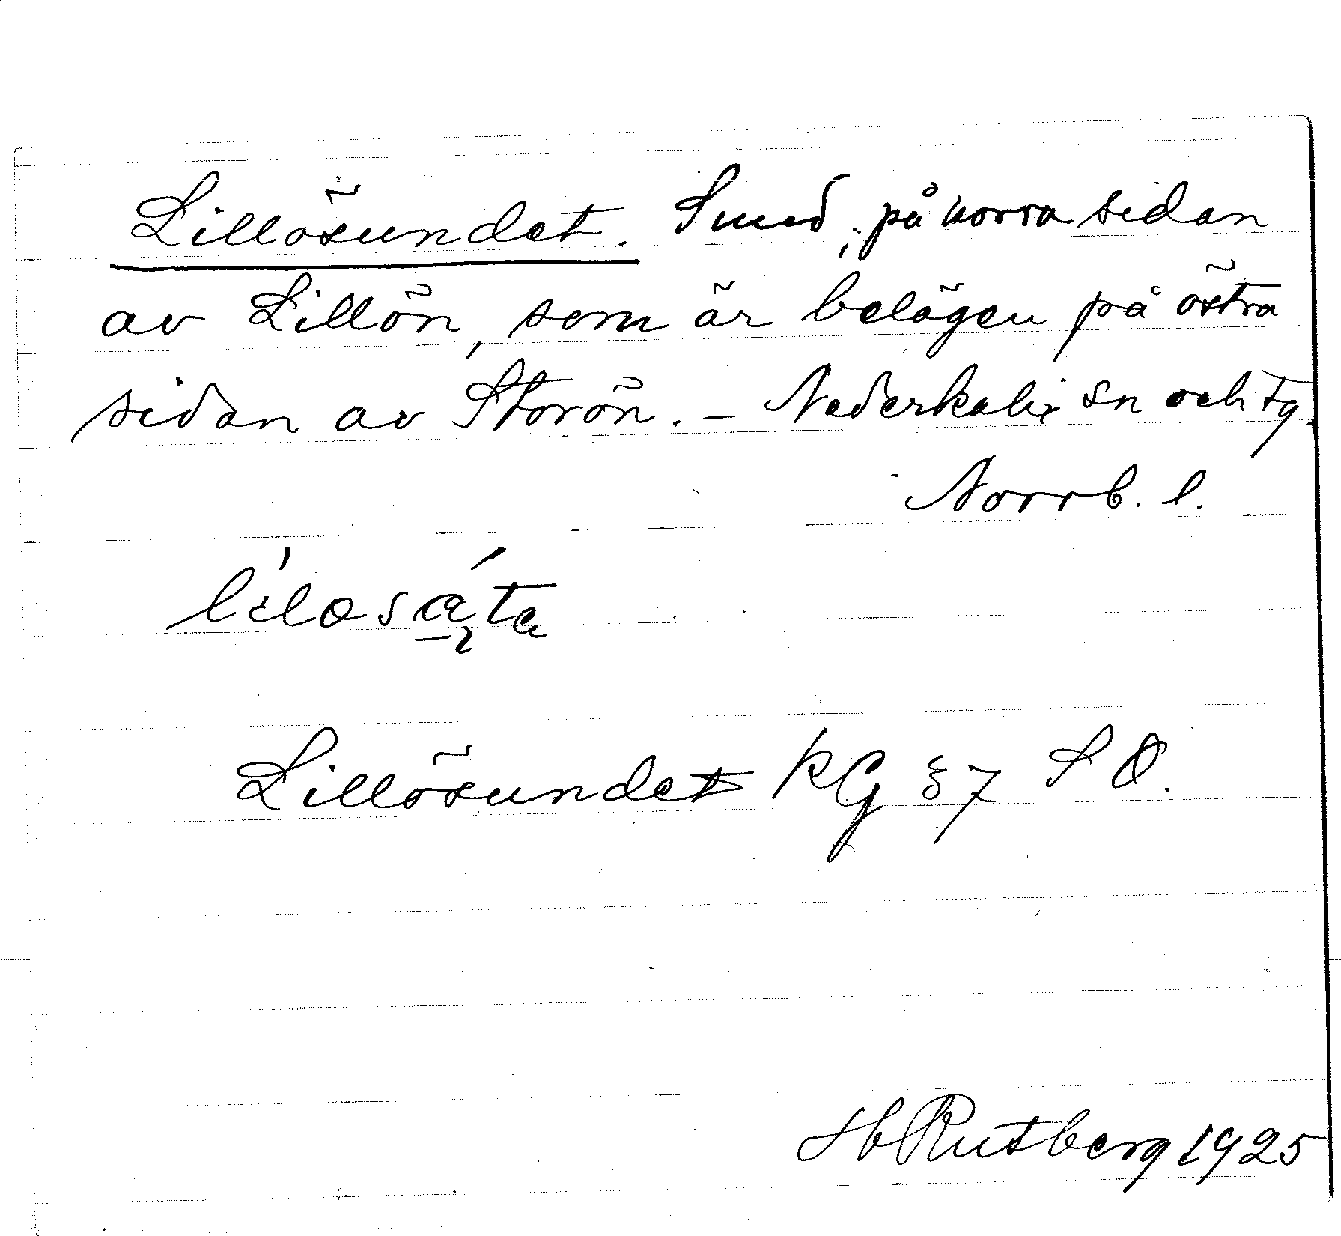 Lillösundet. Sund, på norra sidan
av Lillön, som är belägen på östra
sidan av Storön. – Nederkalix sn och tg.
Norrb. l.
Lillösundet KG 87 SO.
H Rutberg 1925